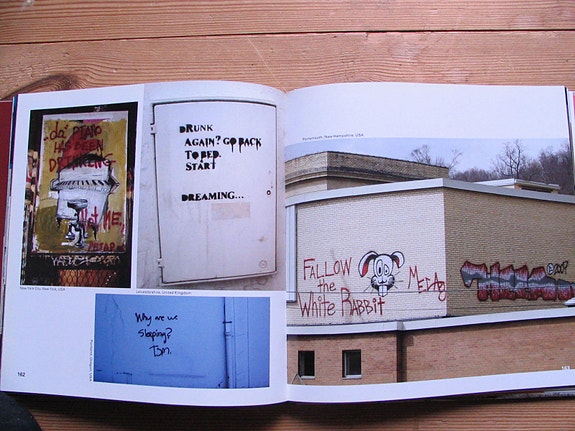 da' PIANO
HAS BEEN
DRINKING
Not ME,
New York City, New York, USA
DRUNK
AGAIN? GO BACK
TO BED.
START
DREAMING...
Leicestershire, United Kingdom
Why are we
sleeping?
162
Portsmouth, New Hampshire, USA
FALLOW
the
White RABBIT